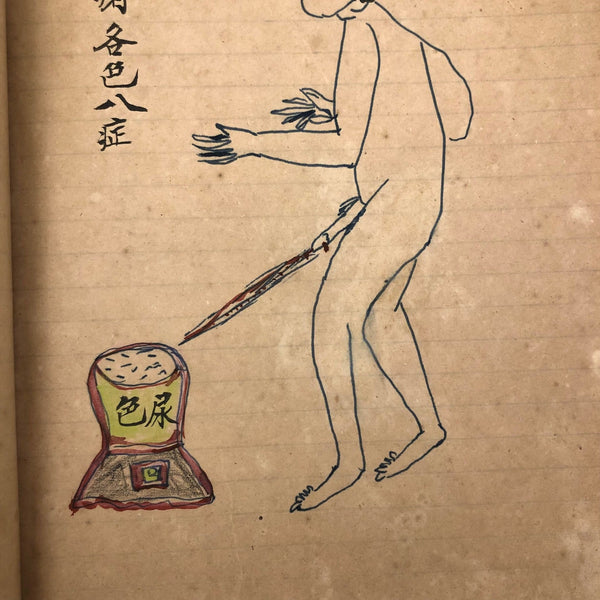 各色八症
尿色